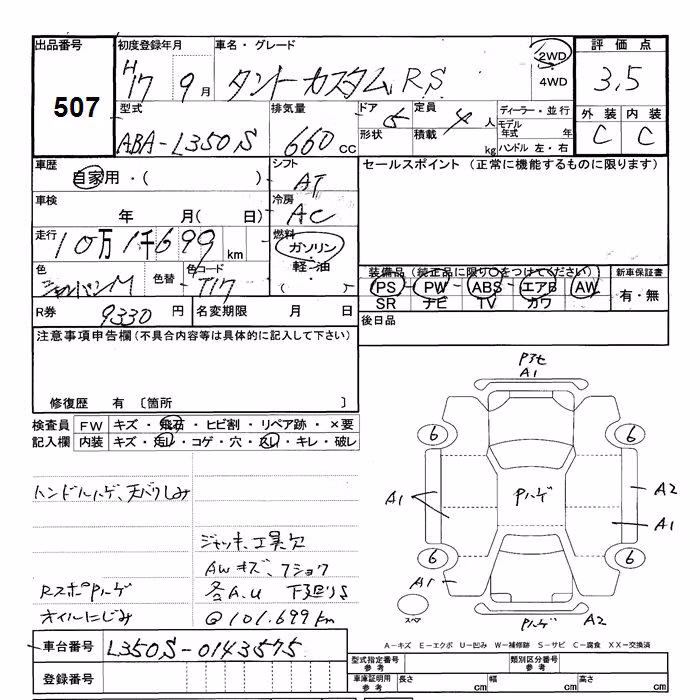 出品番号 初度登録年月 車名・グレード 2WD 評価点
507 H17 9月 タントカスタムRS 4WD 3.5
型式 排気量 ドア 5 定員 4人 ディーラー・並行 外装 内装
ABA-L350S 660cc 形状 積載 kg モデル年式 年 C C
ハンドル 左・右
車歴 自家用・( ) シフト AT セールスポイント (正常に機能するものに限ります)
車検 年 月( 日) 冷房 AC
走行 10万1千699km 燃料 ガソリン 軽・油 ( )
色 シャンパンM 色替 色コード T17
装備品(純正品に限り○をつけてください) 新車保証書
PS・PW・ABS・エアB・AW 有・無
SR ナビ TV カワ
R券 9330円 名変期限 月 日 後日品
注意事項申告欄(不具合内容等は具体的に記入して下さい)
修復歴 有 〔箇所 〕
検査員 FW キズ・飛石・ヒビ割・リペア跡・×要
記入欄 内装 キズ・汚レ・コゲ・穴・スレ・キレ・破レ
ハンドルハゲ、天バリしみ
ジャッキ、工具欠
AWキズ、フショク
RスポPハゲ 各A.U 下廻りS
オイルにじみ @101.699km
Pアセ
A1
6 6
A1 Pハゲ A2
A1
6 6
A1
スペア Pハゲ A2
A-キズ E-エクボ U-凹み W-補修跡 S-サビ C-腐食 XX-交換済
車台番号 L350S-0143575
型式指定番号 参考 類別区分番号 参考
登録番号 車庫証明用 参考 長さ cm 幅 cm 高さ cm